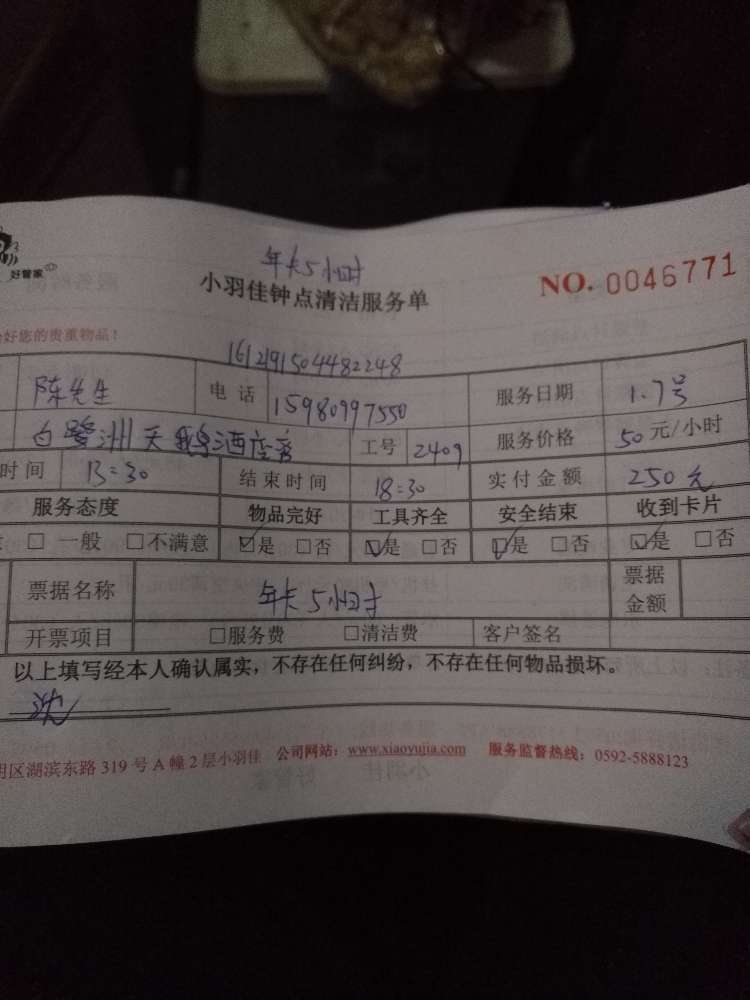 年卡5小时
好管家
小羽佳钟点清洁服务单
NO. 0046771
好您的贵重物品！
1612191504482248
陈先生 电话 15980997550 服务日期 1.7号
白鹭洲天鹅酒店旁 工号 2409 服务价格 50元/小时
时间 13:30 结束时间 18:30 实付金额 250元
服务态度 物品完好 工具齐全 安全结束 收到卡片
□ 一般 □不满意 ☑是 □否 ☑是 □否 ☑是 □否 ☑是 □否
票据名称 年卡5小时 票据金额
开票项目 □服务费 □清洁费 客户签名
以上填写经本人确认属实，不存在任何纠纷，不存在任何物品损坏。
沈
明区湖滨东路319号A幢2层小羽佳 公司网站：www.xiaoyujia.com 服务监督热线：0592-5888123